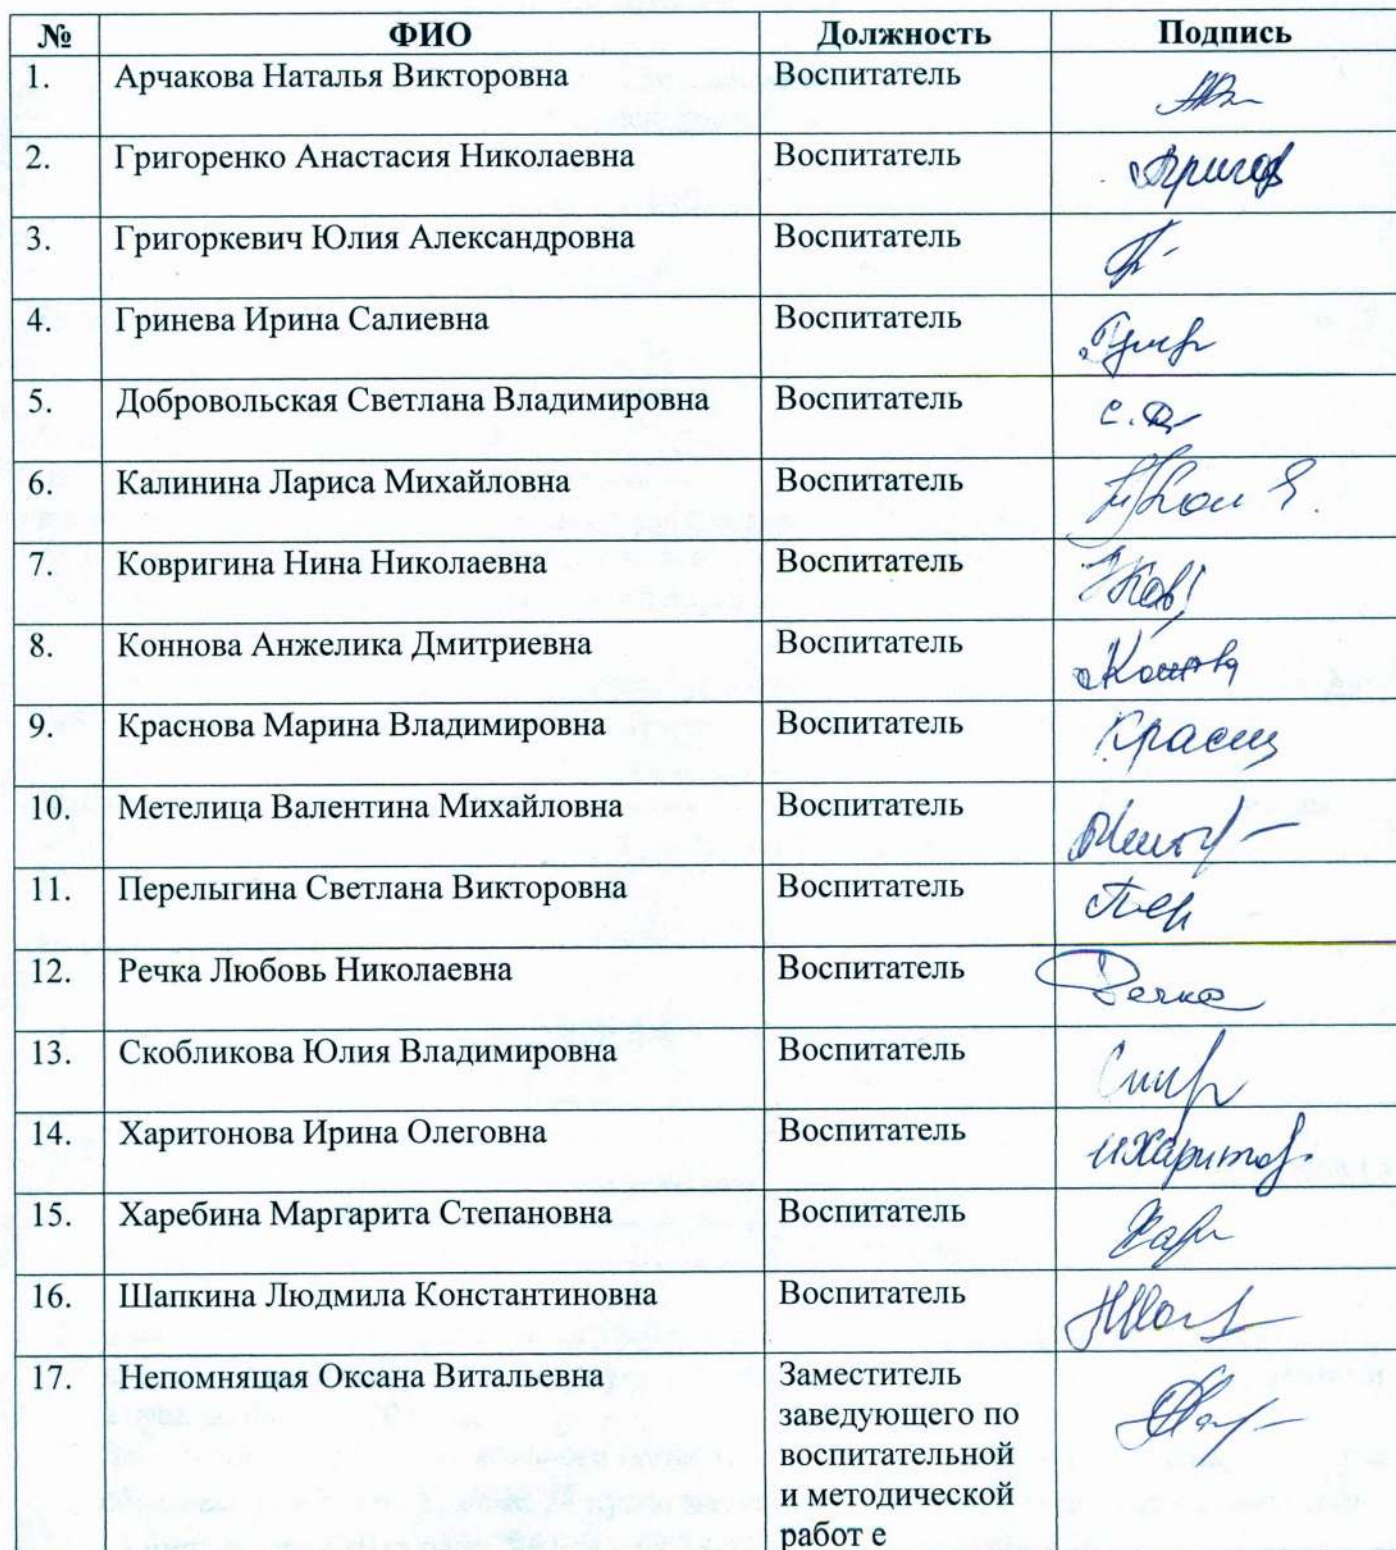 № ФИО Должность Подпись
1. Арчакова Наталья Викторовна Воспитатель
2. Григоренко Анастасия Николаевна Воспитатель Григор
3. Григоркевич Юлия Александровна Воспитатель
4. Гринева Ирина Салиевна Воспитатель
5. Добровольская Светлана Владимировна Воспитатель
6. Калинина Лариса Михайловна Воспитатель
7. Ковригина Нина Николаевна Воспитатель
8. Коннова Анжелика Дмитриевна Воспитатель
9. Краснова Марина Владимировна Воспитатель
10. Метелица Валентина Михайловна Воспитатель
11. Перелыгина Светлана Викторовна Воспитатель Пер
12. Речка Любовь Николаевна Воспитатель Речка
13. Скобликова Юлия Владимировна Воспитатель
14. Харитонова Ирина Олеговна Воспитатель ИХаритов
15. Харебина Маргарита Степановна Воспитатель
16. Шапкина Людмила Константиновна Воспитатель
17. Непомнящая Оксана Витальевна Заместитель
заведующего по
воспитательной
и методической
работ е